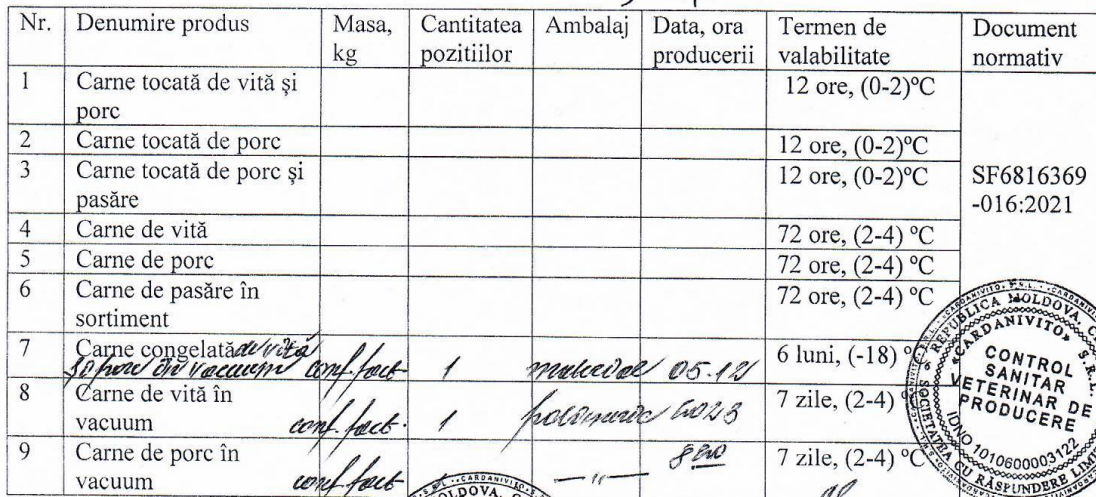 Nr. Denumire produs Masa, kg Cantitatea pozitiilor Ambalaj Data, ora producerii Termen de valabilitate Document normativ
1 Carne tocată de vită şi porc 12 ore, (0-2)ºC
2 Carne tocată de porc 12 ore, (0-2)ºC
3 Carne tocată de porc şi pasăre 12 ore, (0-2)ºC SF6816369 -016:2021
4 Carne de vită 72 ore, (2-4) ºC
5 Carne de porc 72 ore, (2-4) ºC
6 Carne de pasăre în sortiment 72 ore, (2-4) ºC
7 Carne congelată de vită și porc în vacuum conf. fact. 1 material 05.12 6 luni, (-18) º
8 Carne de vită în vacuum conf. fact. 1 polimeric 2023 7 zile, (2-4) º
9 Carne de porc în vacuum conf. fact. —"— 8 00 7 zile, (2-4) ºC
REPUBLICA MOLDOVA
«CARDANIVITO» S.R.L.
CONTROL
SANITAR
VETERINAR DE
PRODUCERE
IDNO 1010600003122
SOCIETATEA CU RĂSPUNDERE